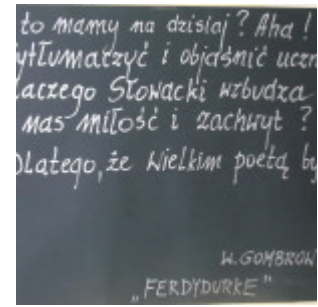 to mamy na dzisiaj? Aha!
ytłumaczyć i objaśnić uczn
laczego Słowacki wzbudza
nas miłość i zachwyt?
Dlatego, że wielkim poetą by
W. GOMBROW
„FERDYDURKE"